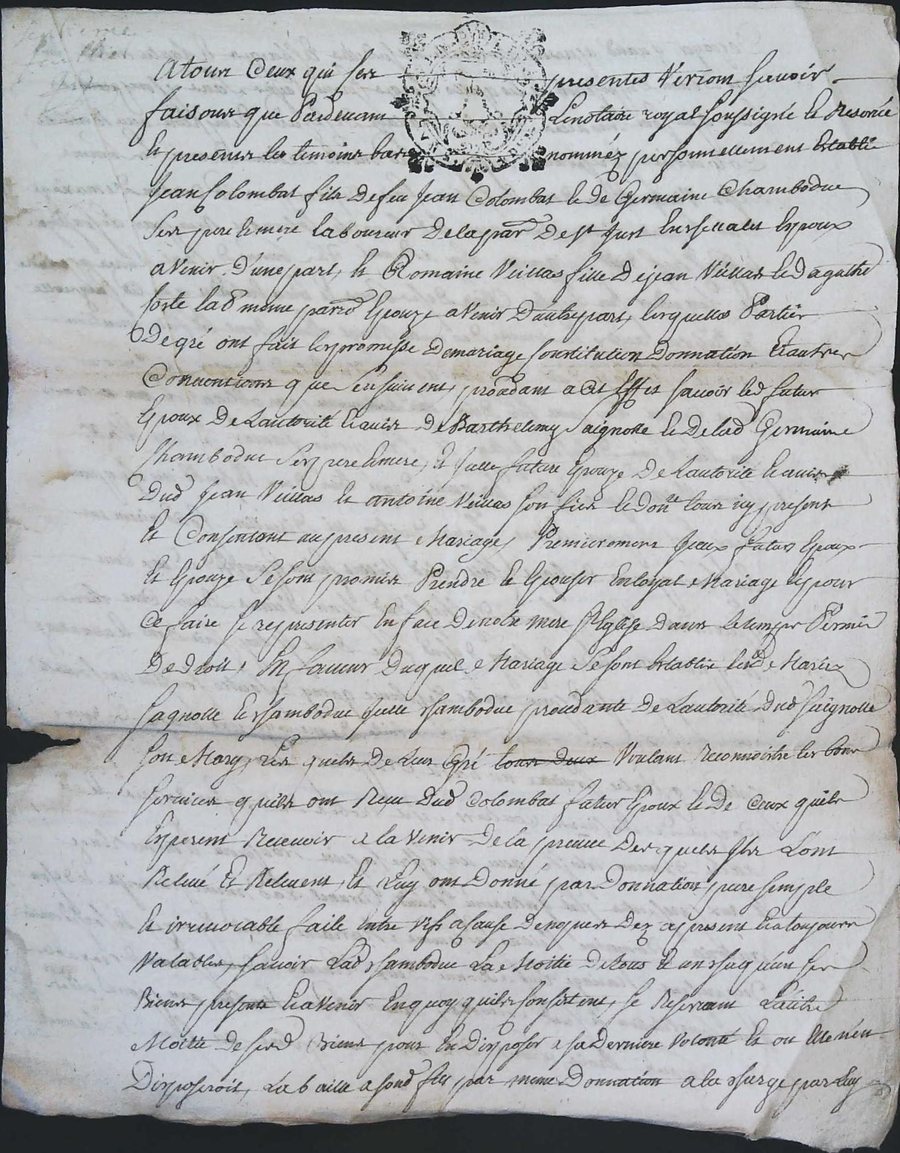 A tous Ceux qui ses presentes Verront scavoir
faisons que Pardevant Le notaire royal soussigné et Reservé
et presents les temoins bas nommez personnellement Etabli
Jean Colombat fils de feu Jean Colombat et de Germaine Chambodue
ses pere et mere laboureur de la par. de St Just En Epoux
avenir d'une part, et Romaine Veillas fille de jean Veillas et d'agathe
forte la mème par. Epouze a venir d'autre part, lesquelles Parties
De gré ont fait les promesse de mariage Constitution Donnation Et autres
Conventions que Ensuivent, procedant a Cet Effet scavoir led. futur
Epoux De Lautorité Et avis de Barthelemy saignolle et de lad. Germaine
Chambodue ses pere et mere, et lade future Epouze De Lautorité Et avis
Dud. Jean Veillas et antoine Veillas son fils tous icy present
Et Consentant au present Mariage, Premierement Iceux futurs Epoux
Et Epouze se sont promis Prendre et Epouser En loyal Mariage Et pour
Ce faire se representer En face De notre mere Ste Eglise dans le temps Permis
De Droit, En faveur Duquel Mariage se sont etablis lesd. Mariez
sagnolle et chambodue Icelle chambodue procedante de Lautorité dud. saignolle
son Mary, Les quels de Leur Gré tous deux Voulant reconnoitre les bons
services quils ont Recu Dud. Colombat futur Epoux et De Ceux quils
Esperent Recevoir a lavenir de la preuve des quels Ils Lont
Relevé Et Relevent, Et Luy ont Donné par Donnation pure simple
Et irrevocable faitte Entre Vifs a Cause de noces Dez a present Et a toujours
Valables, scavoir Lad. chambodue La Moitié de tous Et un chaqu'un ses
Biens presents Et avenir En quoy quils Consistent, se Reservant L'autre
Moitié de sesd. Biens pour En disposer a sa derniere Volonté Et ou Elle n'en
Disposeroit, La baille a sond. fils par meme Donnation a la charge par Luy